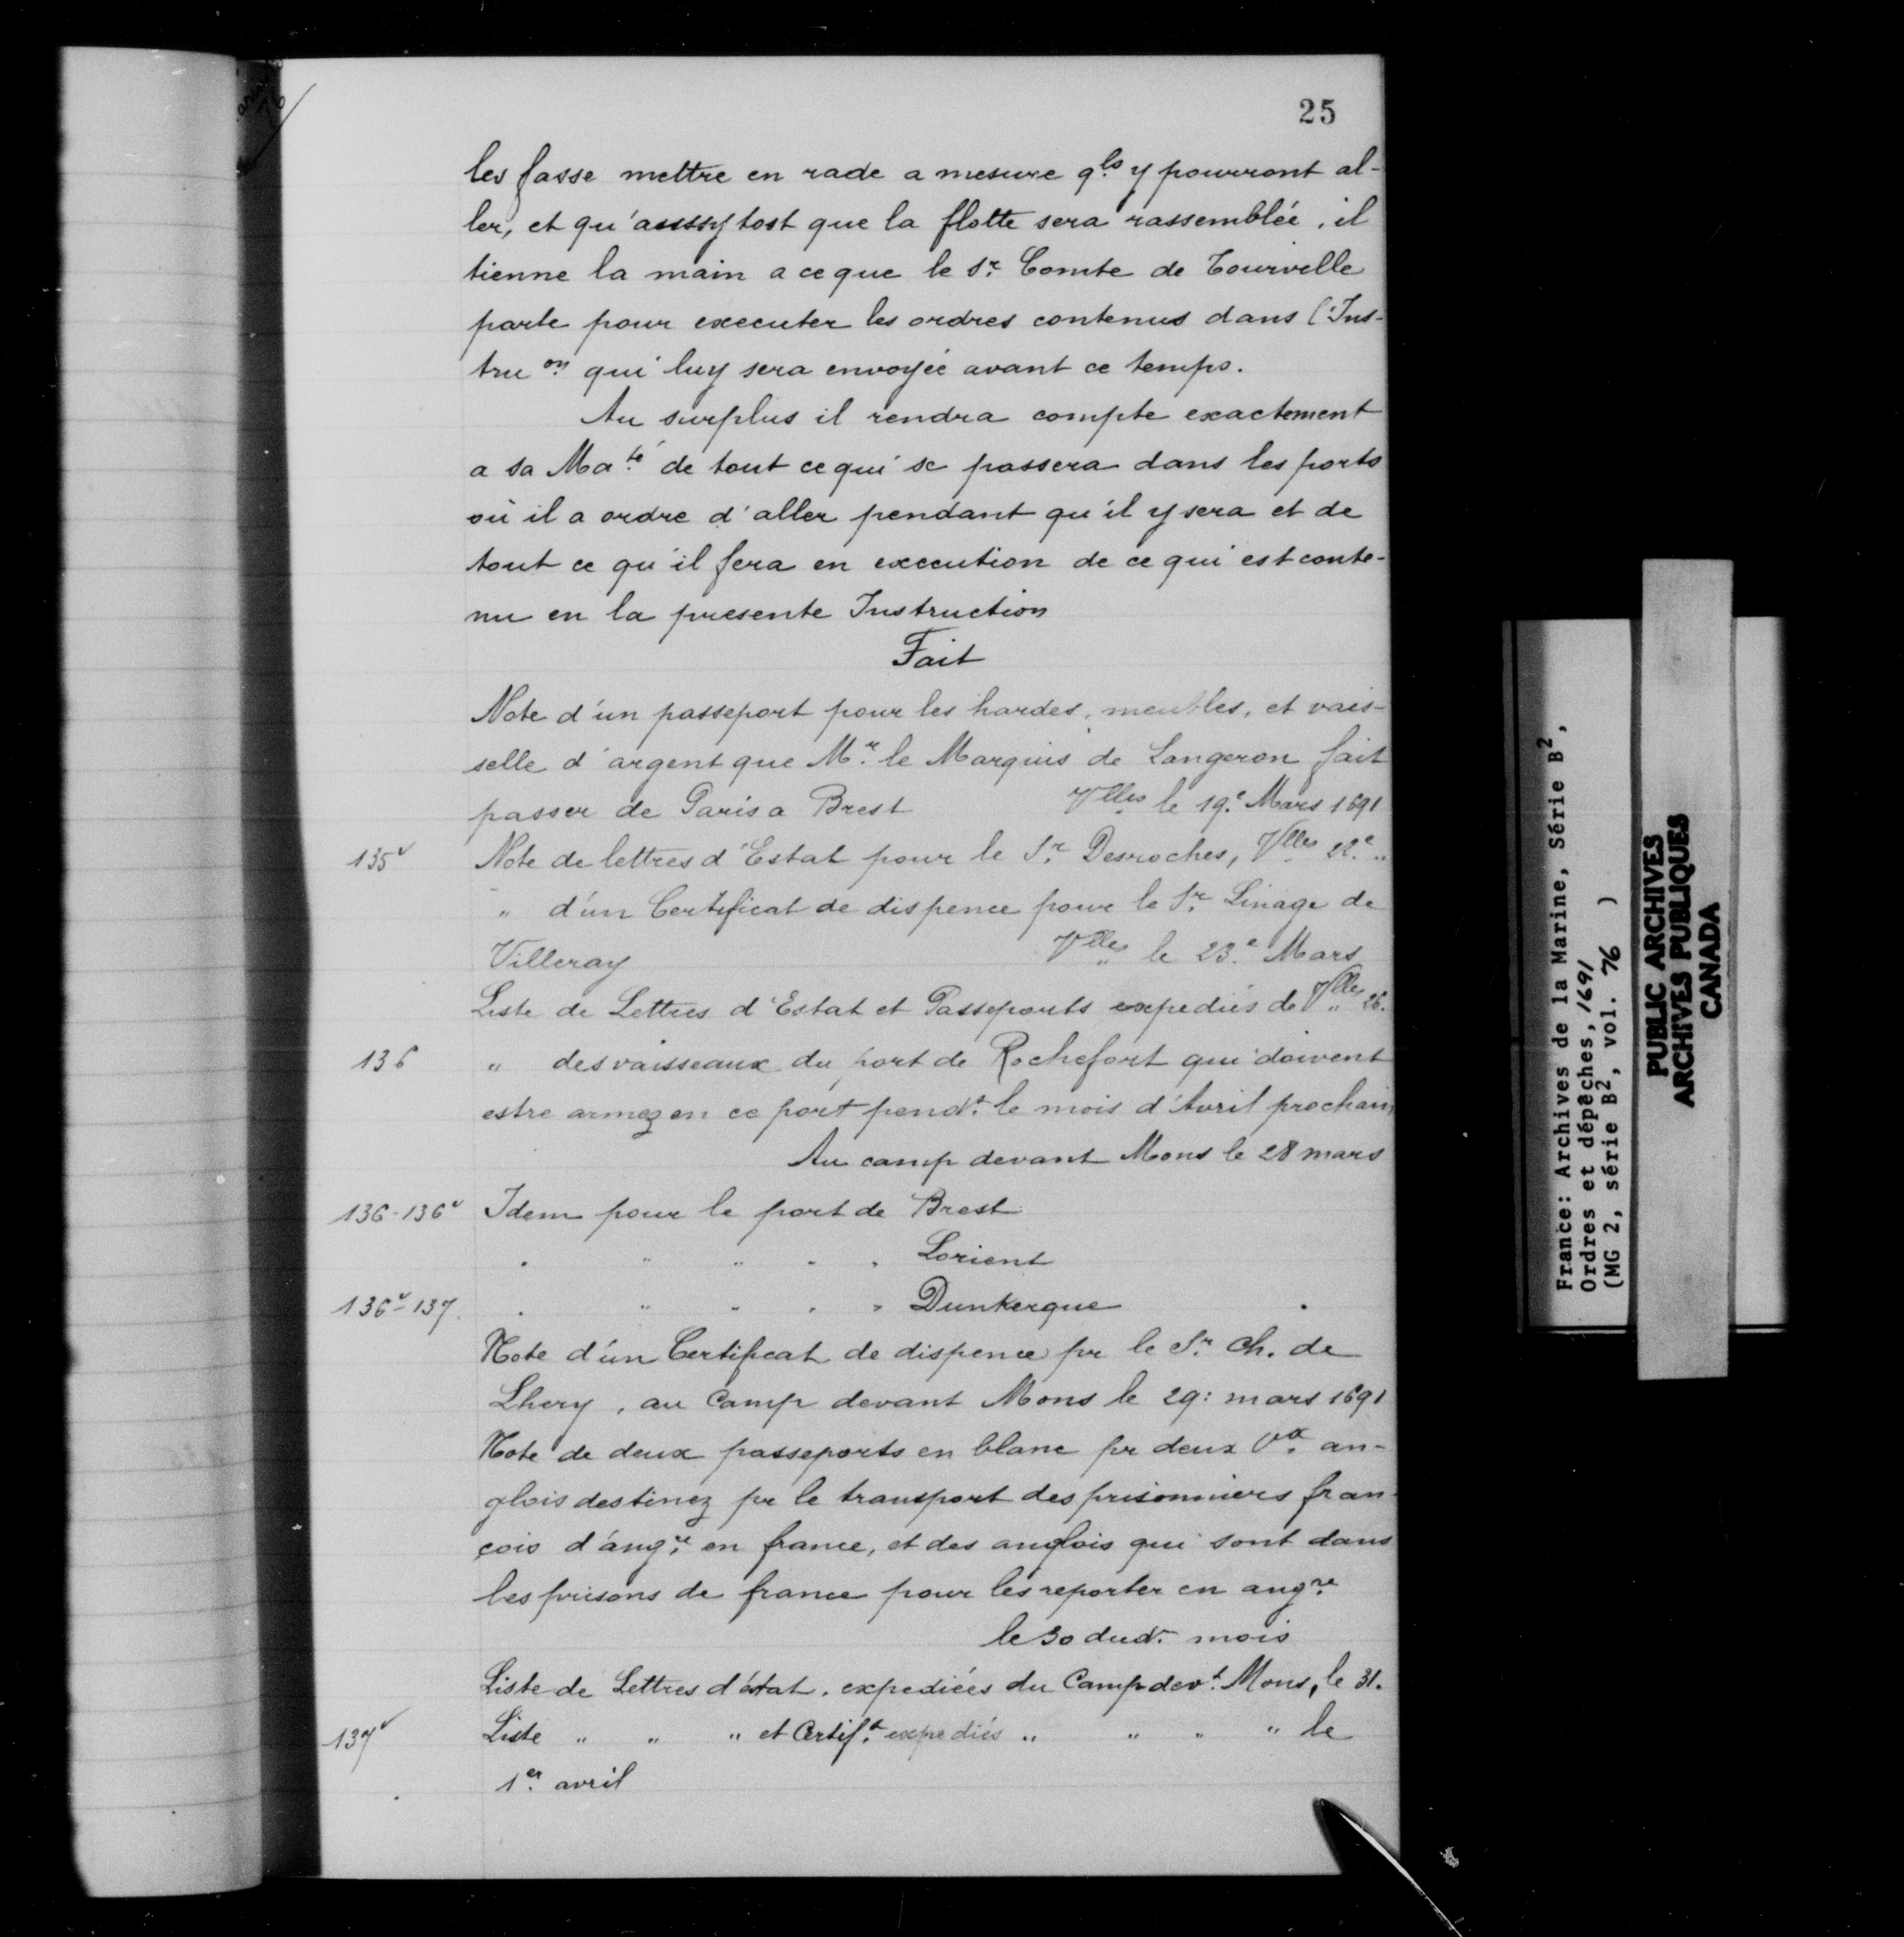 25
les fasse mettre en rade a mesure qls y pourront al-
ler, et qu'aussytost que la flotte sera rassemblée, il
tienne la main a ce que le Sr. Comte de Tourville
parte pour executer les ordres contenus dans l'Ins-
truon qui luy sera envoyée avant ce temps.
Au surplus il rendra compte exactement
a sa Maté de tout ce qui se passera dans les ports
où il a ordre d'aller pendant qu'il y sera et de
tout ce qu'il fera en execution de ce qui est conte-
nu en la presente Instruction
Fait
Note d'un passeport pour les hardes, meubles, et vais-
selle d'argent que Mr. le Marquis de Langeron fait
passer de Paris a Brest Vlles le 19e. Mars 1691
135v Note de lettres d'Estat pour le Sr. Desroches, Vlles 22e. "
" d'un Certificat de dispence pour le Sr. Linage de
Villeray Vlles le 23e. Mars
Liste de Lettres d'Estat et Passeports expediés de Vlles 26.
136 " des vaisseaux du port de Rochefort qui doivent
estre armez en ce port pendt. le mois d'Avril prochain
Au camp devant Mons le 28 mars
136-136v Idem pour le port de Brest
" " " " " Lorient
136v-137. " " " " " Dunkerque
Note d'un Certificat de dispence pr le Sr. Ch. de
Lhery, au Camp devant Mons le 29: mars 1691
Note de deux passeports en blanc pr deux Vx. an-
glois destinez pr le transport des prisonniers fran-
çois d'angre. en france, et des anglois qui sont dans
les prisons de france pour les reporter en angre.
le 30 dudt. mois
Liste de Lettres d'état. expediées du Camp devt. Mons, le 31.
137v Liste " " " et Certift. expediés " " " " le
1er. avril
France: Archives de la Marine, Série B2,
Ordres et dépêches, 1691
(MG 2, série B2, vol. 76 )
PUBLIC ARCHIVES
ARCHIVES PUBLIQUES
CANADA